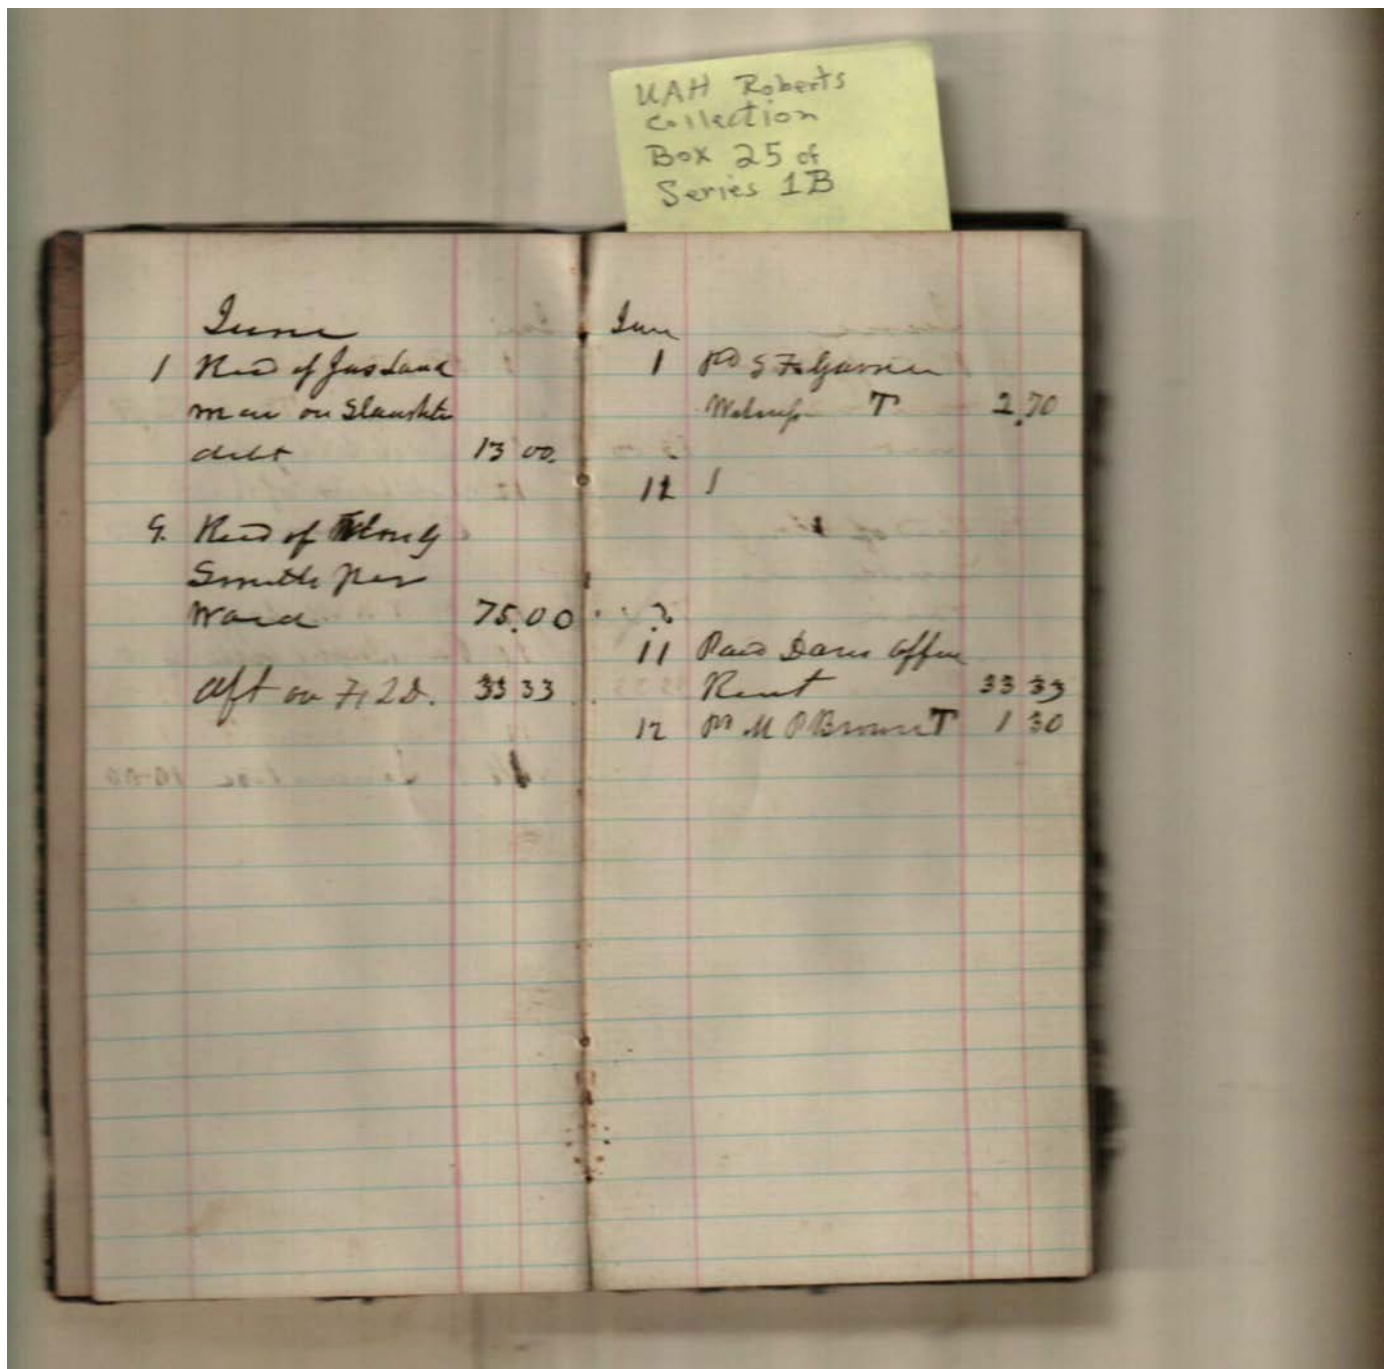 UAH Roberts
Collection
Box 25 of
Series 1B
June
1 Recd of Jas Land
man on Slaughte
debt 13 00.
9. Recd of
Smith per
Ward 75.00
on 33 33
June
1 Pd
T 2.70
12
11 Paid Davis Office
Rent 33 33
12 Pd M P Brown T 1 30